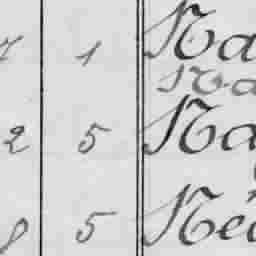 7 1 Na
Na
2 5 Na
8 5 Né